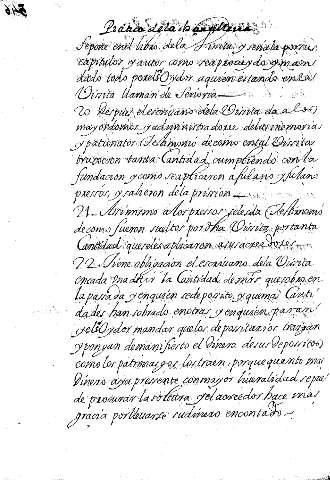 Pratica de la
se pone en el libro de la Visita, y señala por sus
capitulos y autos como se a proveydo y man
dado todo por el Oydor, a quien estando en la
Visita llaman de Señoria
20 Despues el escrivano de la Visita da a los
mayordomos, y administradores de las memorias
y patronatos testimonio de como en tal Visita
truxeron tanta Cantidad, cumpliendo con la
fundacion y como se aplicaron a fulano y fulan
pressos, y salieron de la prission
21 Assimismo a los pressos se les da testimonio
de como fueron sueltos por dha Visita, por tanta
Cantidad que se les aplicaron a sus acreedores
22 Tiene obligacion el escrivano de la Visita
en cada una dezir la Cantidad de mrs que sobro en
la passada y en quien se deposito, y que mas Canti
dades han sobrado en otras, y en quien paran
y el Oydor mandar que los depositarios traigan
y pongan de manifiesto el dinero de sus depositos
como los patronazgos los traen, porque quanto mas
dinero aya presente con mayor liveralidad se pue
de procurar la soltura, y el acreedor hace mas
gracia por llevarse su dinero en contado